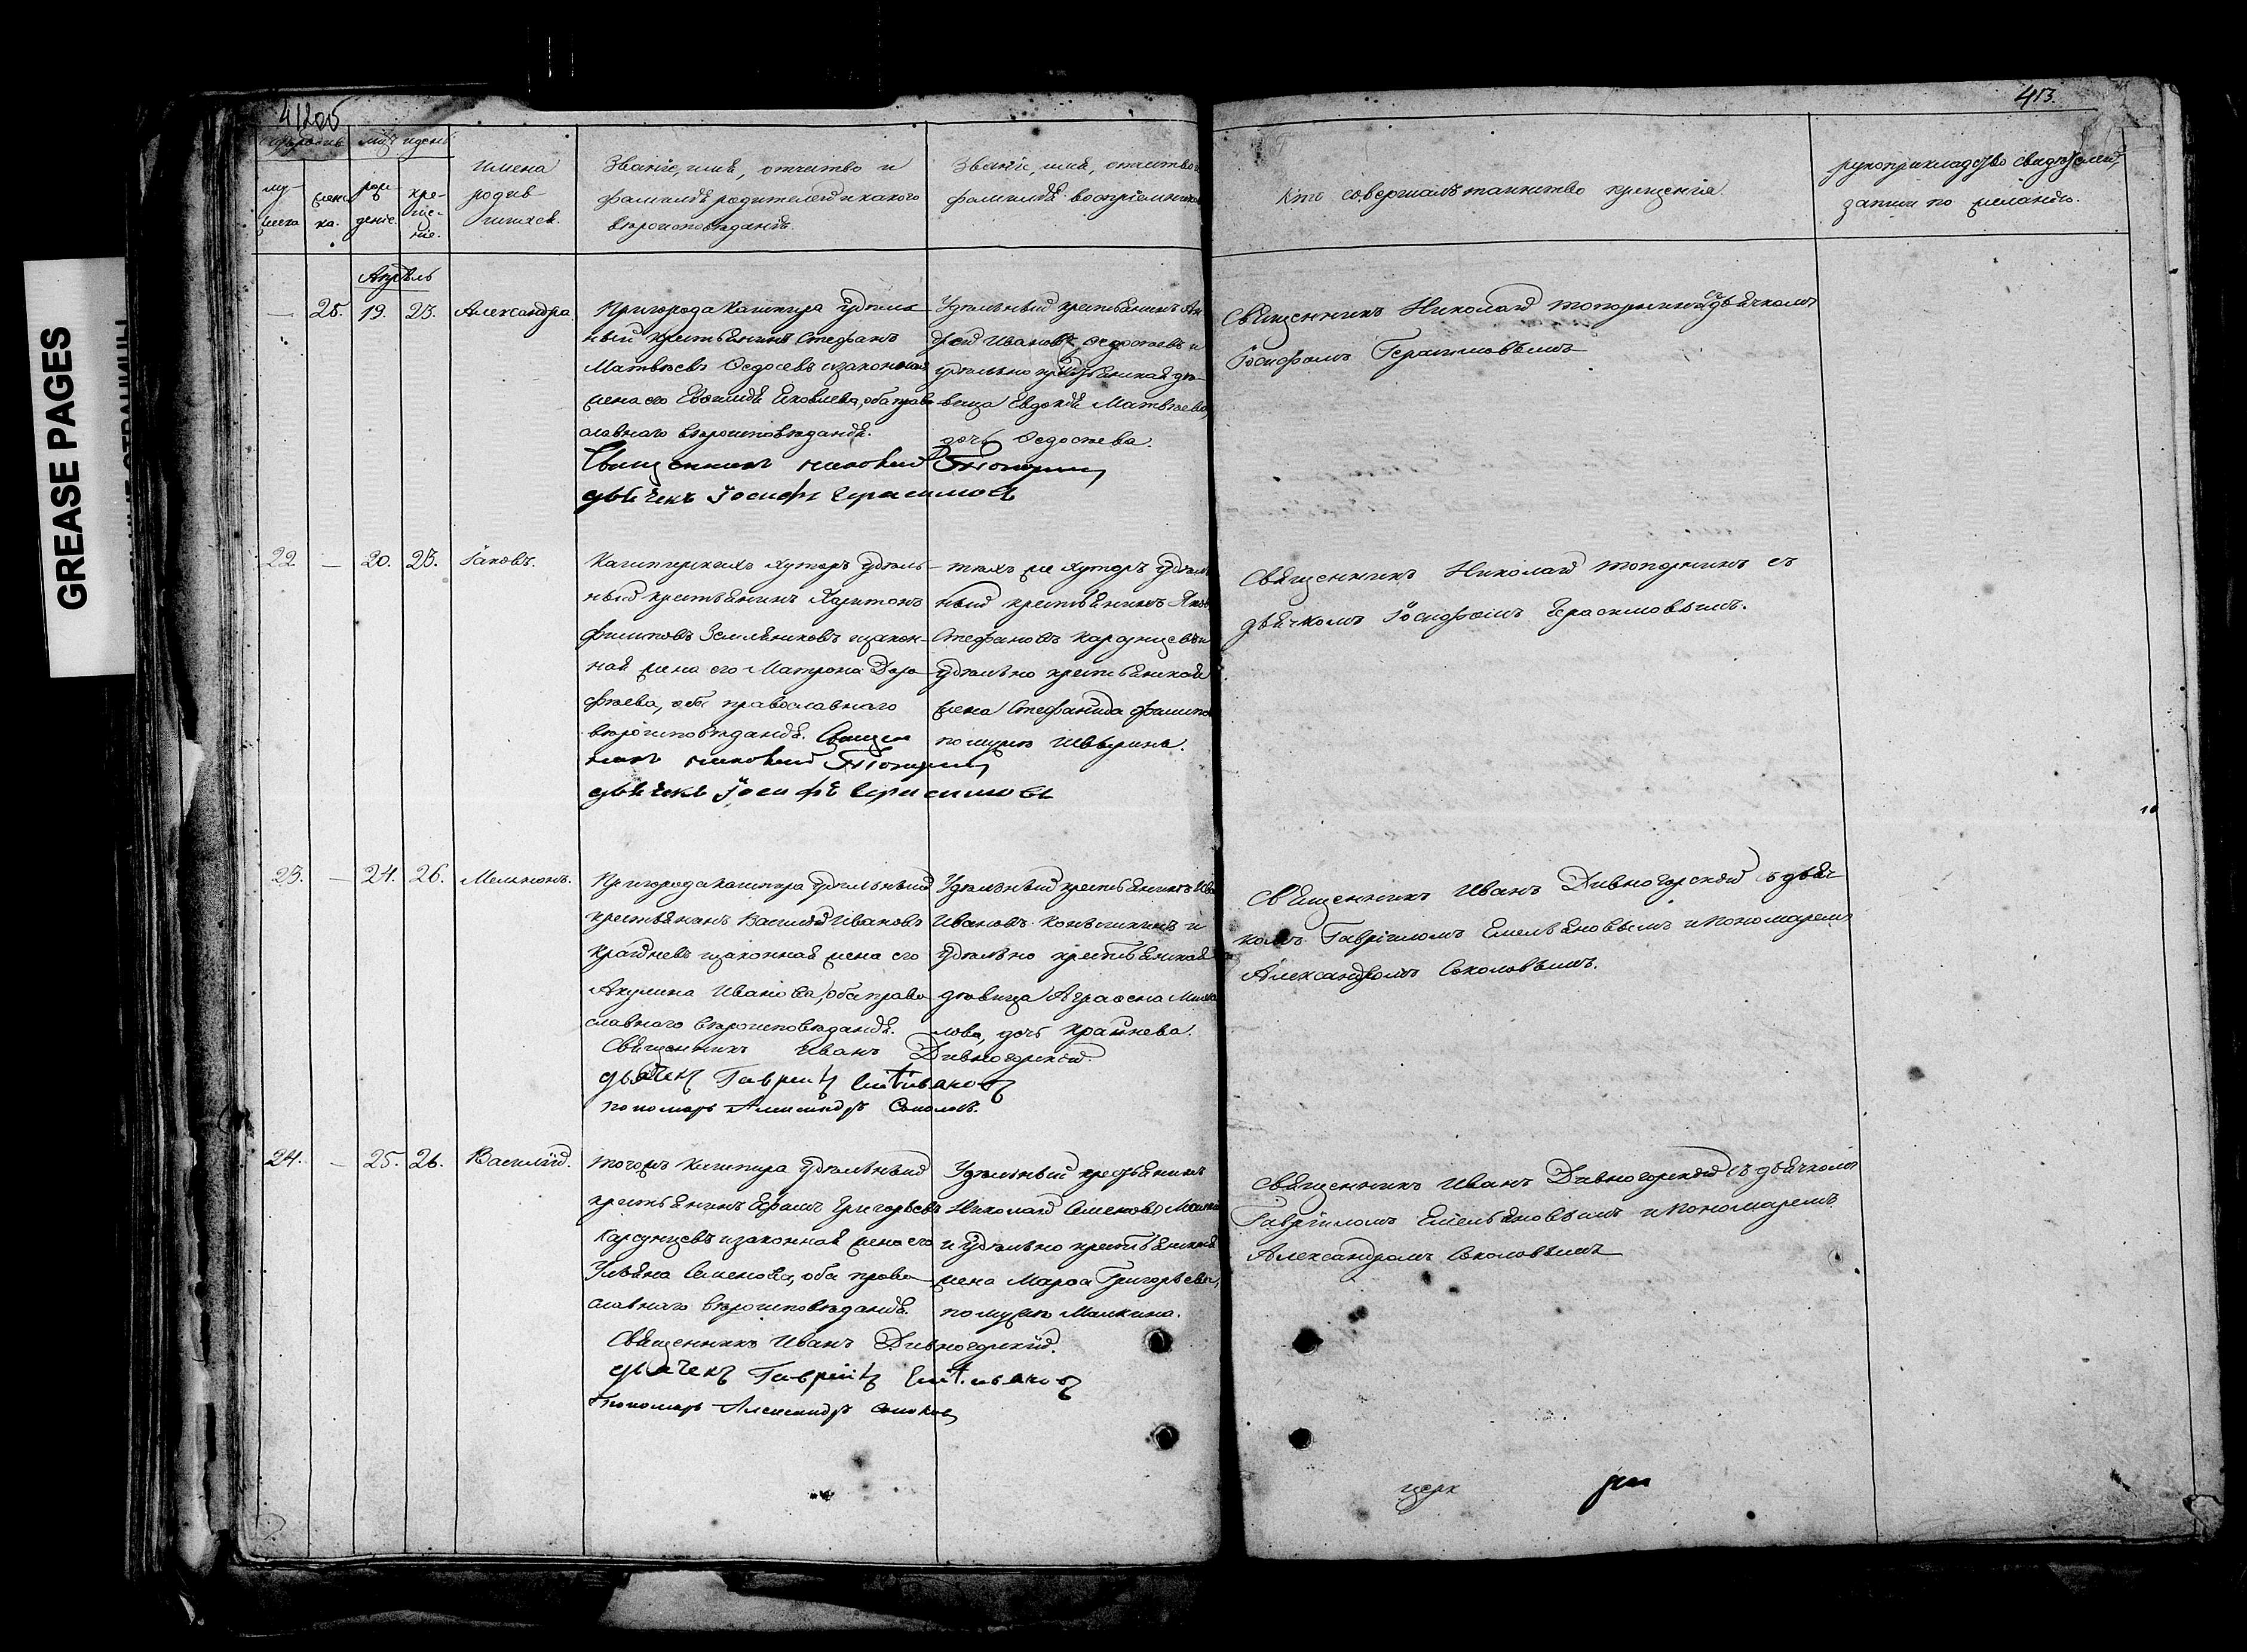 GREASE PAGES
412об
413.
Счетъ родив
мѣс. и день
му-
жеска
женс
ка.
рож
деніе.
кре-
ще-
ніе.
имена
родив
шихся.
Званіе, имя, отчество и
фамилія родителей и какого
вѣроисповѣданія.
Званіе, имя, отчество
фамилія воспріемник
Кто совершалъ таинство крещенія
рукоприкладство свидѣтелей
записи по желанію.
Апрѣль
— 25. 19. 23. Александра.
Пригорода Кашпира удѣль
ный крестьянинъ Стефанъ
Матвѣевъ Ѳедосѣевъ и законная
жена его Евѳимія Яковлева, оба право
славнаго вѣроисповѣданія.
Священникъ Николай Топорнинъ
дьячекъ Іосифъ Герасимовъ
Удѣльный крестьянинъ Ан
дрей Ивановъ Ѳедосѣевъ и
удѣльно крестьянская дѣ-
вица Евдокія Матвѣева,
дочь Ѳедосѣева.
Священникъ Николай Топорнинъ съ дьячкомъ
Іосифомъ Герасимовымъ
22 — 20. 23. Іаковъ.
Кашпирскихъ хуторъ удѣль
ный крестьянинъ Харитонъ
Филиповъ Земляниковъ и закон-
ная жена его Матрона Доро
фѣева, оба православнаго
вѣроисповѣданія. Священ
никъ Николай Топорнинъ
дьячекъ Іосифъ Герасимовъ
тѣхъ же хуторъ удѣль
ный крестьянинъ Яков
Стефановъ Карсунцевъ и
удѣльно крестьянская
жена Стефанида Филипов
по мужѣ
Священникъ Николай Топорнинъ съ
дьячкомъ Іосифомъ Герасимовымъ.
23. — 24. 26. Мелитонъ.
Пригорода Кашпира удѣльный
крестьянинъ Василій Ивановъ
Крайневъ и законная жена его
Акулина Иванова, оба право
славнаго вѣроисповѣданія.
Священникъ Иванъ Дивногорскій.
дьячекъ Гавріилъ Емельяновъ
пономарь Александръ Соколовъ.
Удѣльный крестьянинъ Ива
Ивановъ и
удѣльно крестьянская
дѣвица Аграфена Михай
лова, дочь Крайнева.
Священникъ Иванъ Дивногорскій съ дьяч
комъ Гавріиломъ Емельяновымъ и пономаремъ
Александромъ Соколовымъ.
24. — 25. 26. Василій.
Тогожъ Кашпира удѣльный
крестьянинъ Ефремъ Григорьевъ
Карсунцевъ и законная жена его
Ульяна Семенова, оба право
славнаго вѣроисповѣданія.
Священникъ Иванъ Дивногорскій.
дьячекъ Гавріилъ Емельяновъ
Пономарь Александръ Соколовъ
Удѣльный крестьянинъ
Николай Семеновъ
и удѣльно крестьянская
жена Марѳа Григорьева,
по мужѣ Малкина.
Священникъ Иванъ Дивногорскій съ дьячкомъ
Гавріиломъ Емельяновымъ и пономаремъ
Александромъ Соколовымъ
церк